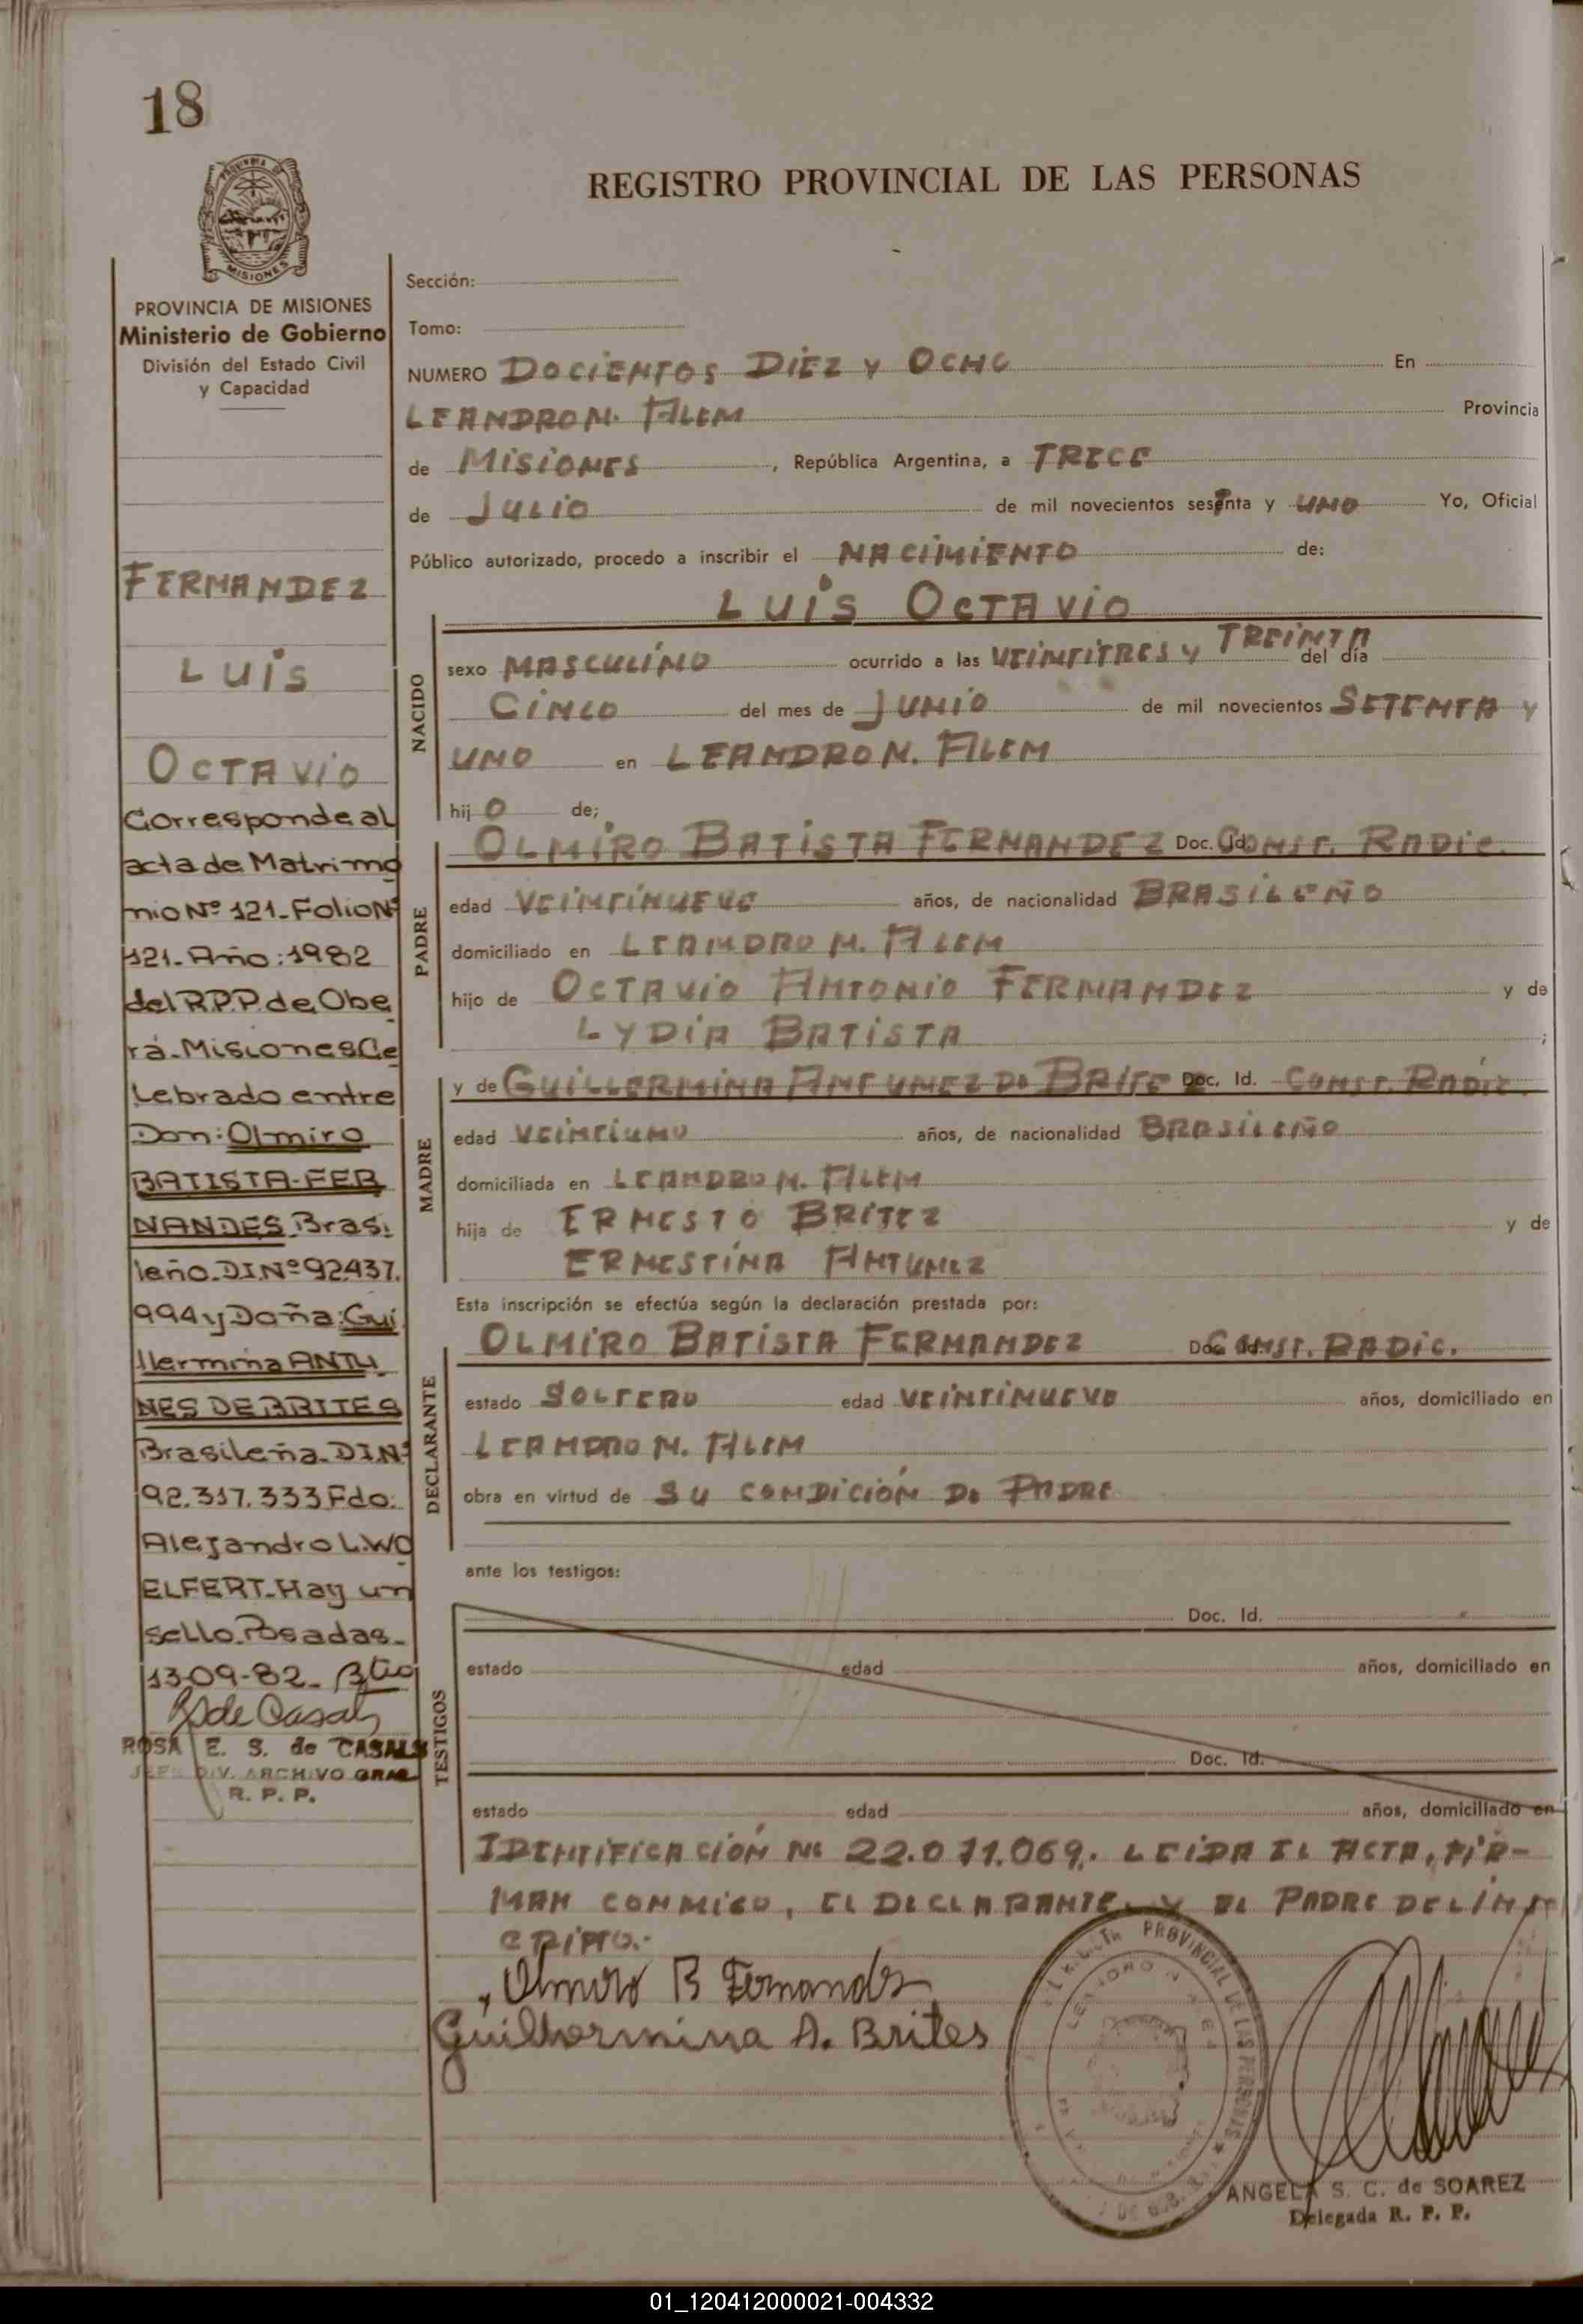 18
PROVINCIA DE MISIONES
MISIONES
PROVINCIA DE MISIONES
Ministerio de Gobierno
División del Estado Civil
y Capacidad
FERNANDEZ
LUIS
OCTAVIO
Corresponde al
acta de Matrimo
nio Nº 121_Folio Nº
121_Año:1982
del R.P.P. de Obe
rá_Misiones Ce
lebrado entre
Don: Olmiro
BATISTA-FER
NANDES Brasi
leño_D.I.Nº 92.437.
994 y Doña: Gui
llermina ANTU
NES DE BRITES
Brasileña_D.I.Nº
92.317.333 Fdo:
Alejandro L. WO
ELFERT_Hay un
sello_Posadas_
13-09-82_
de Casals
ROSA E. S. de CASALS
JEFE DIV. ARCHIVO GRAL
R. P. P.
REGISTRO PROVINCIAL DE LAS PERSONAS
Sección:
Tomo:
NUMERO DOCIENTOS DIEZ Y OCHO En
LEANDRO N. ALEM Provincia
de MISIONES, República Argentina, a TRECE
de JULIO de mil novecientos sesenta y UNO Yo, Oficial
Público autorizado, procedo a inscribir el NACIMIENTO de:
LUIS OCTAVIO
NACIDO
sexo MASCULINO ocurrido a las VEINTITRES Y TREINTA del día
CINCO del mes de JUNIO de mil novecientos SETENTA Y
UNO en LEANDRO N. ALEM
hij O de;
PADRE
OLMIRO BATISTA FERNANDEZ Doc. Id. CONST. RADIC.
edad VEINTINUEVE años, de nacionalidad BRASILEÑO
domiciliado en LEANDRO N. ALEM
hijo de OCTAVIO ANTONIO FERNANDEZ y de
LYDIA BATISTA ;
MADRE
y de GUILLERMINA ANTUNEZ DE BRITE Doc. Id. CONST. RADIC.
edad VEINTIUNO años, de nacionalidad BRASILEÑO
domiciliada en LEANDRO N. ALEM
hija de ERNESTO BRITEZ y de
ERNESTINA ANTUNEZ
Esta inscripción se efectúa según la declaración prestada por:
DECLARANTE
OLMIRO BATISTA FERNANDEZ Doc. Id. CONST. RADIC.
estado SOLTERO edad VEINTINUEVE años, domiciliado en
LEANDRO N. ALEM
obra en virtud de SU CONDICIÓN DE PADRE
ante los testigos:
TESTIGOS
Doc. Id.
estado edad años, domiciliado en
Doc. Id.
estado edad años, domiciliado en
IDENTIFICACIÓN Nº 22.071.069. LEIDA EL ACTA, FIR-
MAN CONMIGO, EL DECLARANTE Y EL PADRE DEL INS
CRIPTO.-
Olmiro B Fernandes
Guilhermina A. Brites
PROVINCIAL DE LAS PERSONAS
LEANDRO N. ALEM
ANGELA S. C. de SOAREZ
Delegada R. P. P.
01_120412000021-004332